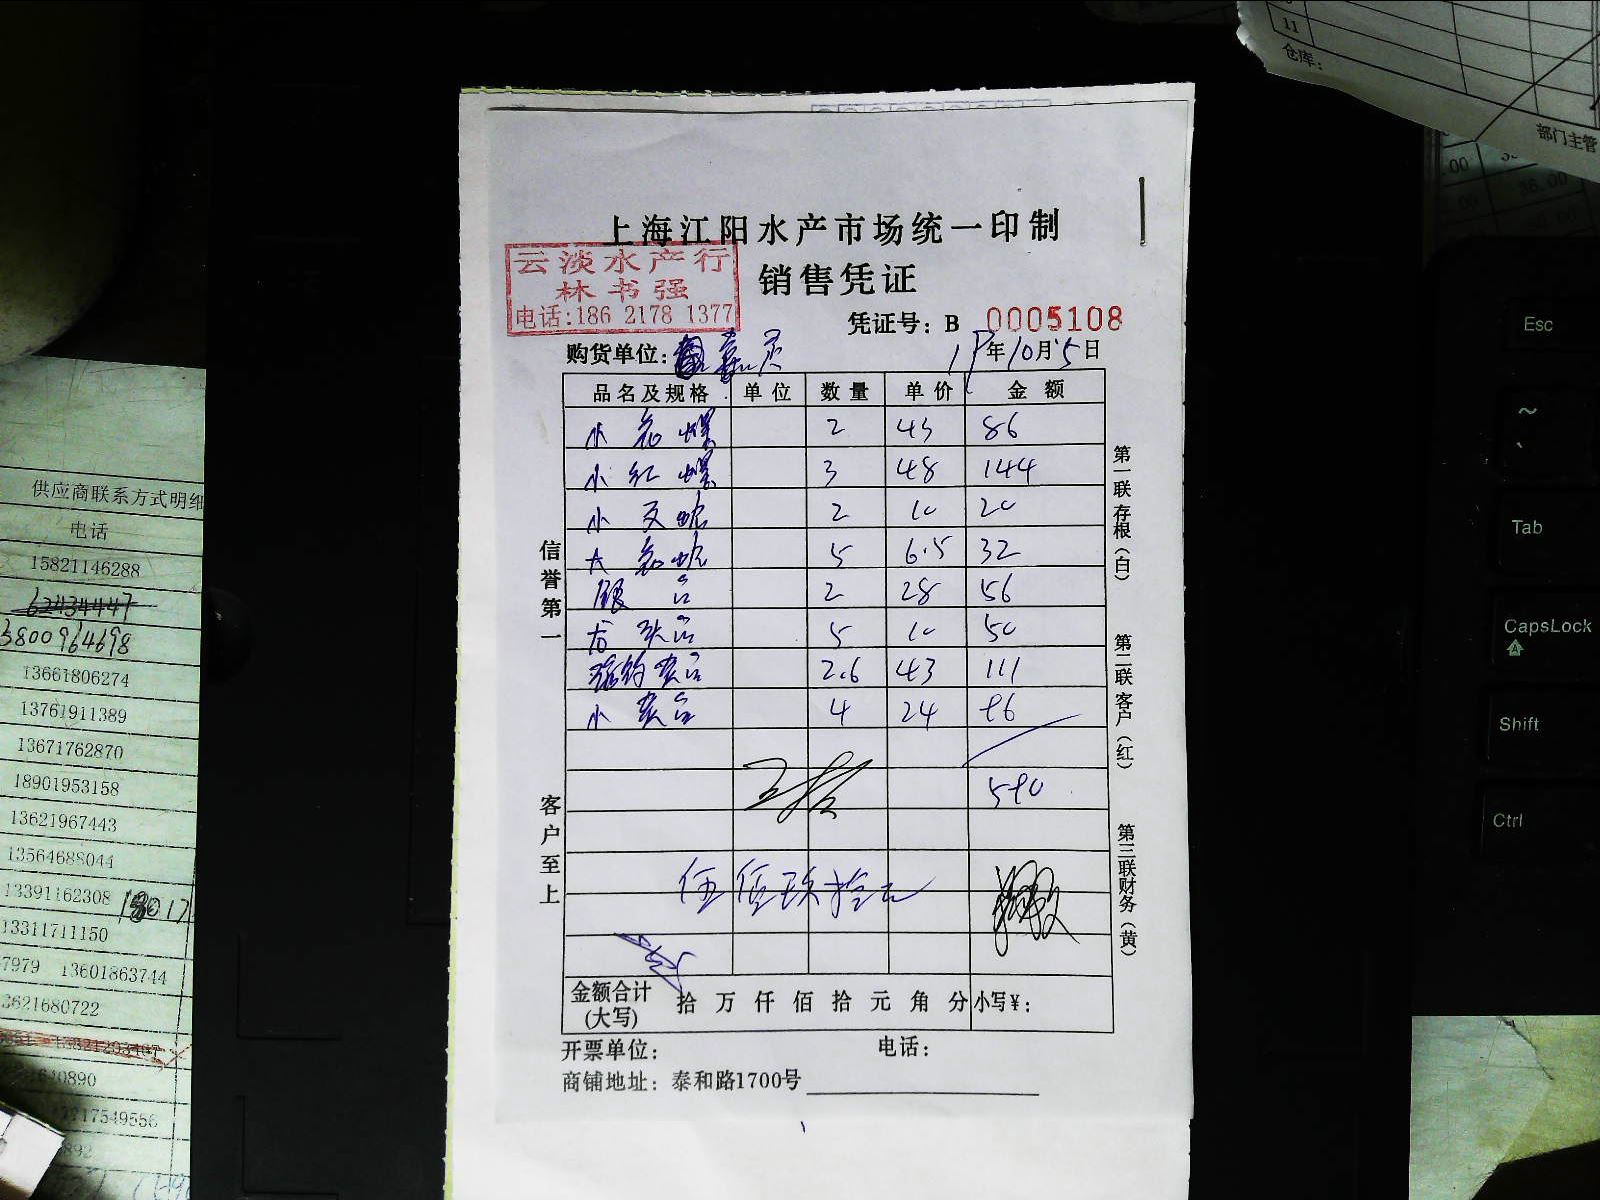 上海江阳水产市场统一印制
云淡水产行
林书强
电话:186 2178 1377
销售凭证
凭证号: B 0005108
购货单位:
19年10月5日
品名及规格 单位 数量 单价 金额
小花螺 2 43 86
小红螺 3 48 144
小文蛤 2 10 20
大花蛤 5 6.5 32
2 28 56
5 10 50
2.6 43 111
小 4 24 96
590
伍佰玖拾元
金额合计(大写) 拾 万 仟 佰 拾 元 角 分 小写¥:
开票单位: 电话:
商铺地址: 泰和路1700号
信誉第一
客户至上
第一联存根(白)
第二联客户(红)
第三联财务(黄)
供应商联系方式明细
电话
15821146288
62434447
13661806274
13761911389
13671762870
18901953158
13621967443
13564688044
13391162308
13311711150
7979 13601863744
3621680722
11
仓库:
部门主管
36.00
Esc
~
Tab
CapsLock
Shift
Ctrl